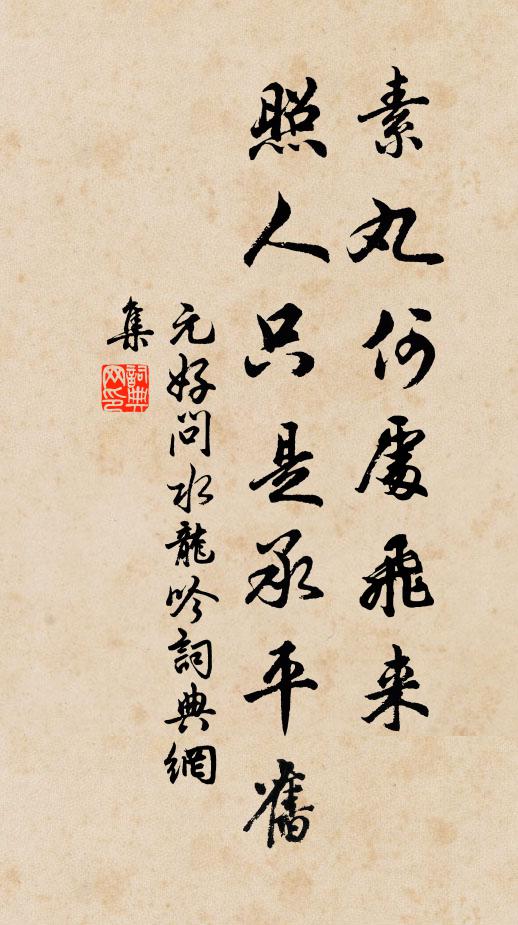 素丸何處飛来
照人只是承平舊
元好問水龍吟詞典網
集
詞典网印